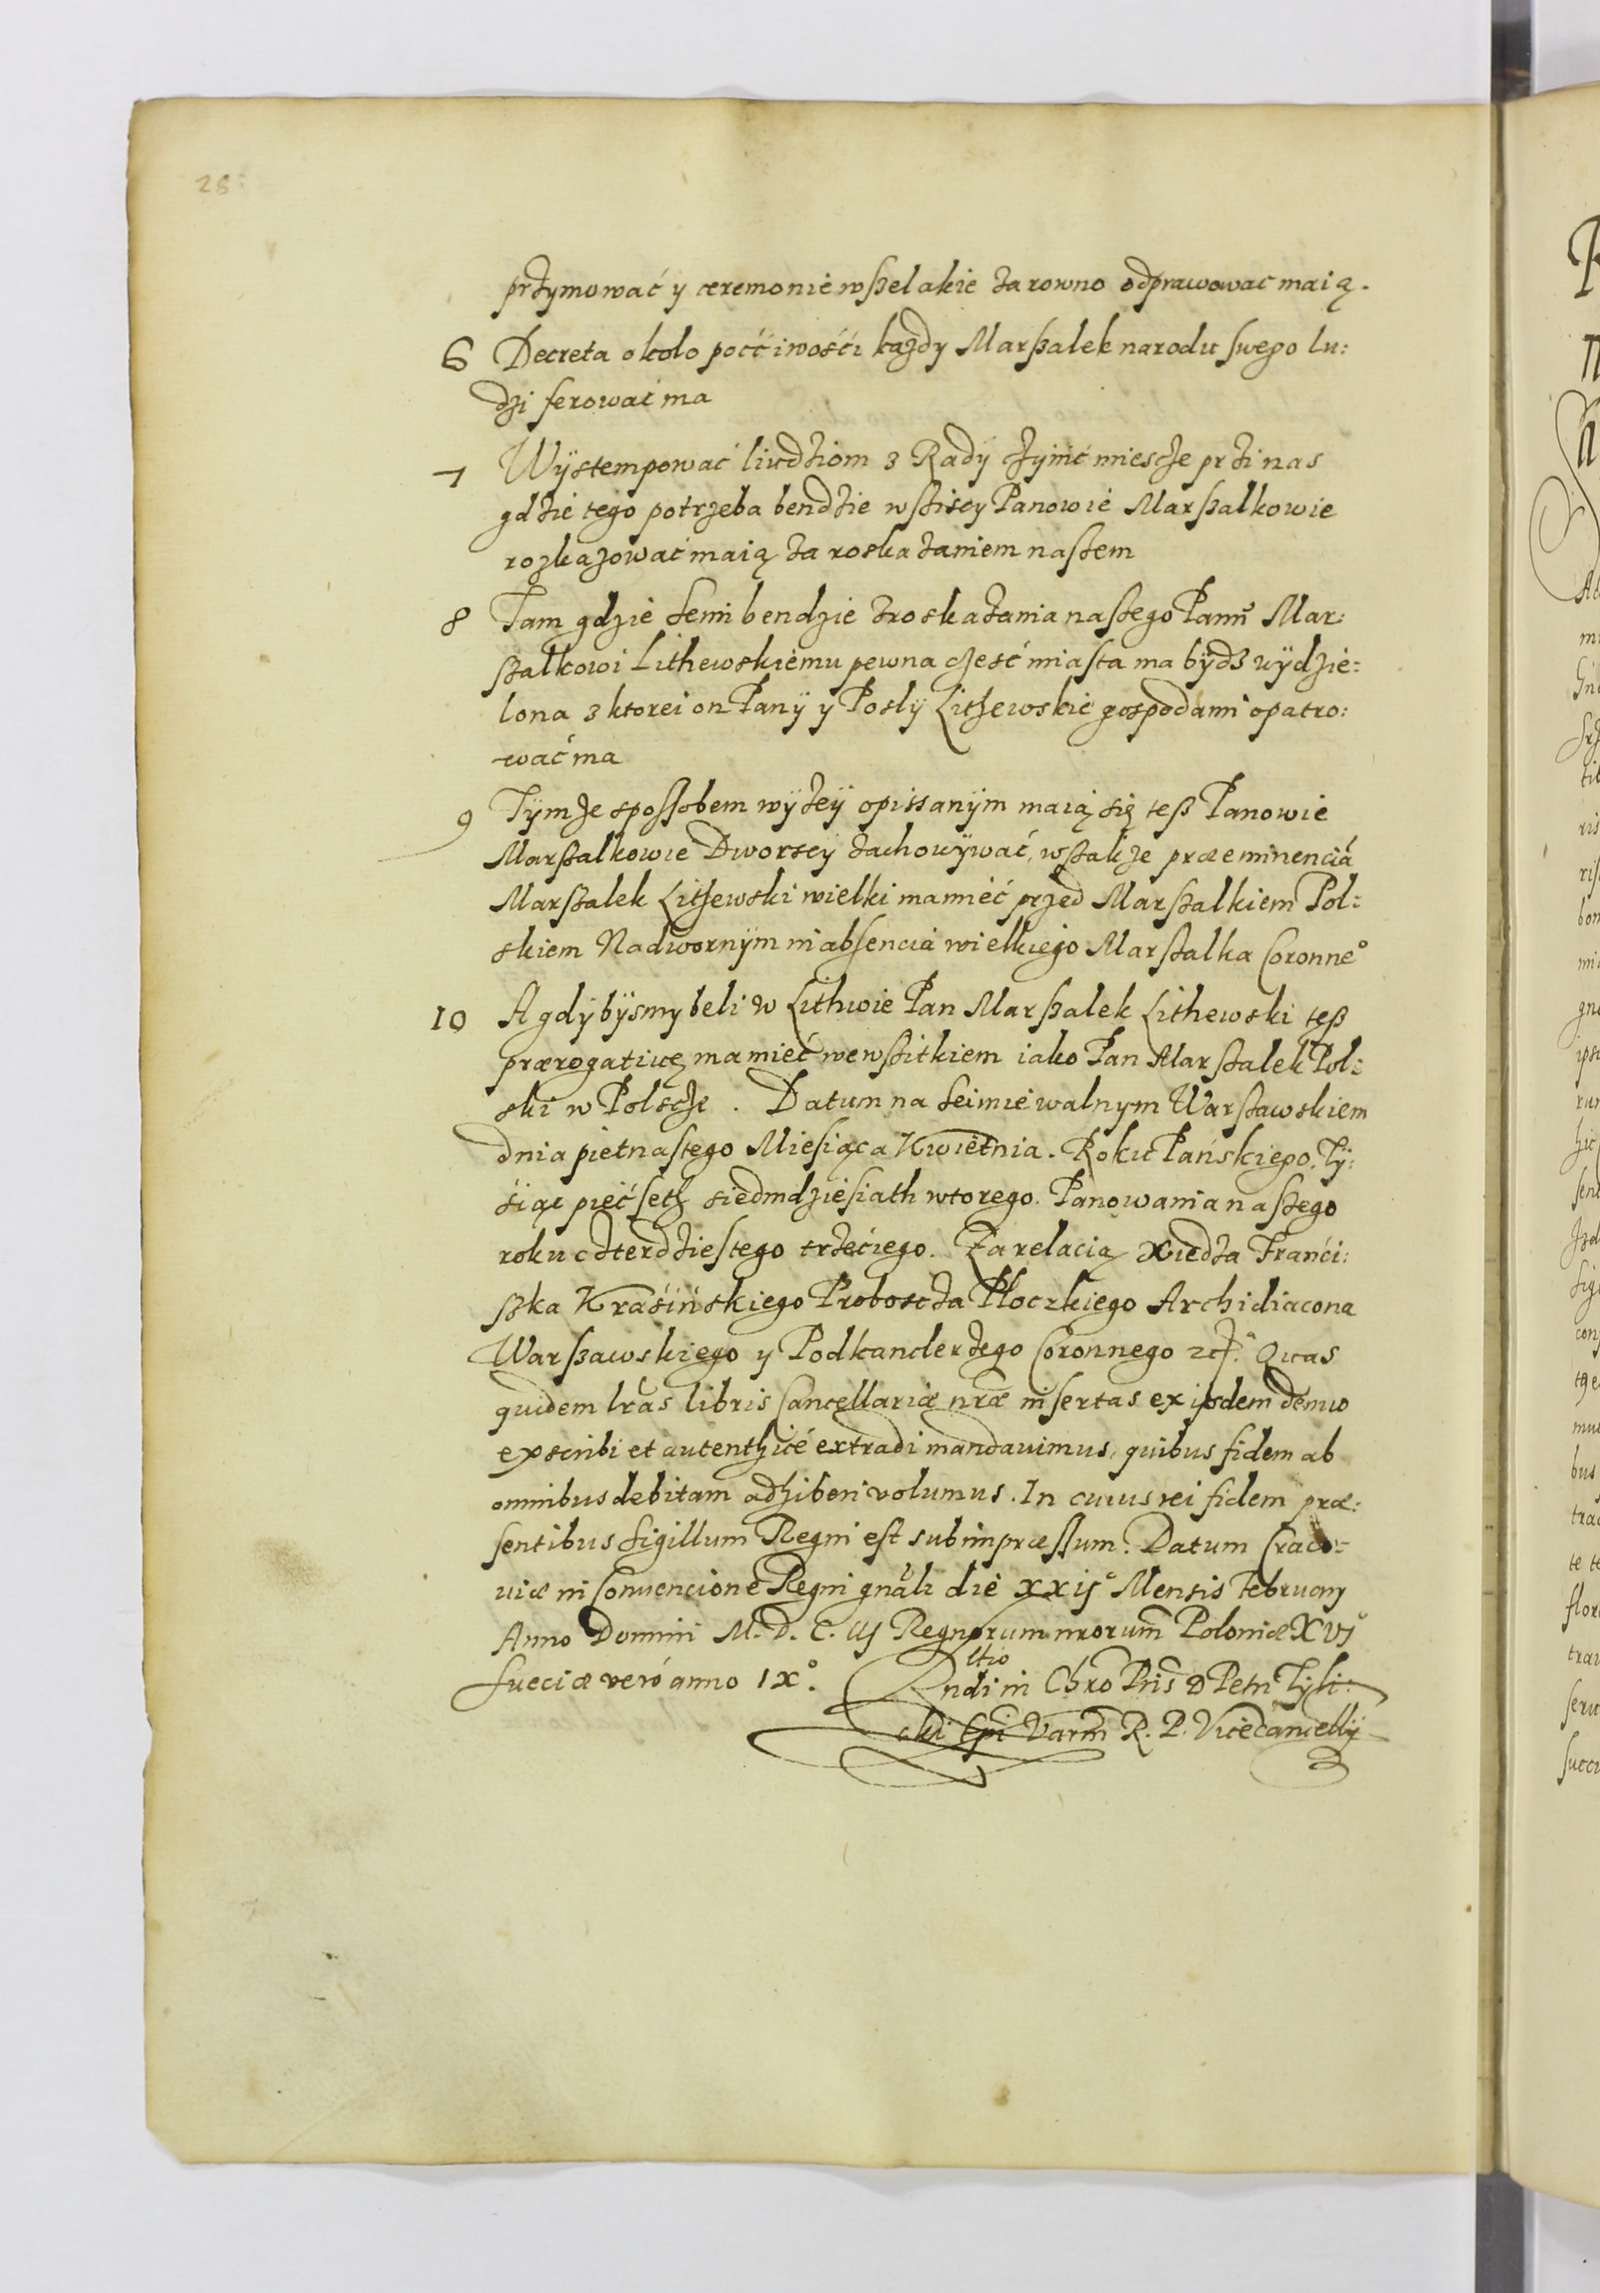 28
przymować y ceremonie wszelakie zarowno odprawować maią.
6 Decreta około poćciwośći każdy Marszałek narodu swego lu:
dzi ferować ma
7 Wÿstempować liudziom z Rady cżÿnić miescże przi nas
gdzie tego potrzeba bendzie wsziscy Panowie Marszalkowie
rozkazować maią za roskazaniem naszem
8 Tam gdzie Semi bendzie z roskazania naszego Panu Mar:
szalkowi Lithewskiemu pewna cżesć miasta ma bÿdz wÿdzie:
lona z ktorei on Panÿ y Poslÿ Lithewskie gospodami opatro:
wać ma
9 Tÿmże sposobem wÿżeÿ opissanÿm maią się tesz Panowie
Marszalkowie Dworscy zachowÿwać, wszakże præeminenciá
Marszalek Lithewski wielki ma mieć przed Marszalkiem Pol:
skiem Nadwornÿm in absencia wielkiego Marszalka Coronneº
10 A gdÿbÿsmy beli w Lithwie Pan Marszalek Lithewski tesz
prærogatiwę ma mieć we wszitkiem iako Pan Marszalek Pol:
ski w Polscże. Datum na Seimie walnym Warszawskiem
dnia pietnastego Miesiąca Kwietnia. Roku Pańskiego. Tÿ:
śiąc pieć seth siedmdziesiath wtorego. Panowania naszego
roku czterdziestego trzećiego. Za relacią Xiedza Franći:
szka Kraśińskiego Proboscza Płoczkiego Archidiacona
Warszawskiego y Podkanclerzego Coronnego etc. Quas
quidem lras libris Cancellariæ nræ insertas ex ijsdem denuo
exscribi et autenthicé extradi mandauimus, quibus fidem ab
omnibus debitam adhiberi volumus. In cuius rei fidem præ:
sentibus Sigillum Regni est subimpræssum. Datum Craco:
uiæ in Conuencione Regni gnali die xxijº Mensis Februarij
Anno Domini M. D. C. iij Regnorum nrorum Poloniæ XVjº
Sueciæ verò anno IXº. Rndi in Chro Pris D Petri Tÿli:
cki Epi Varm R. P. Vicecancellÿ